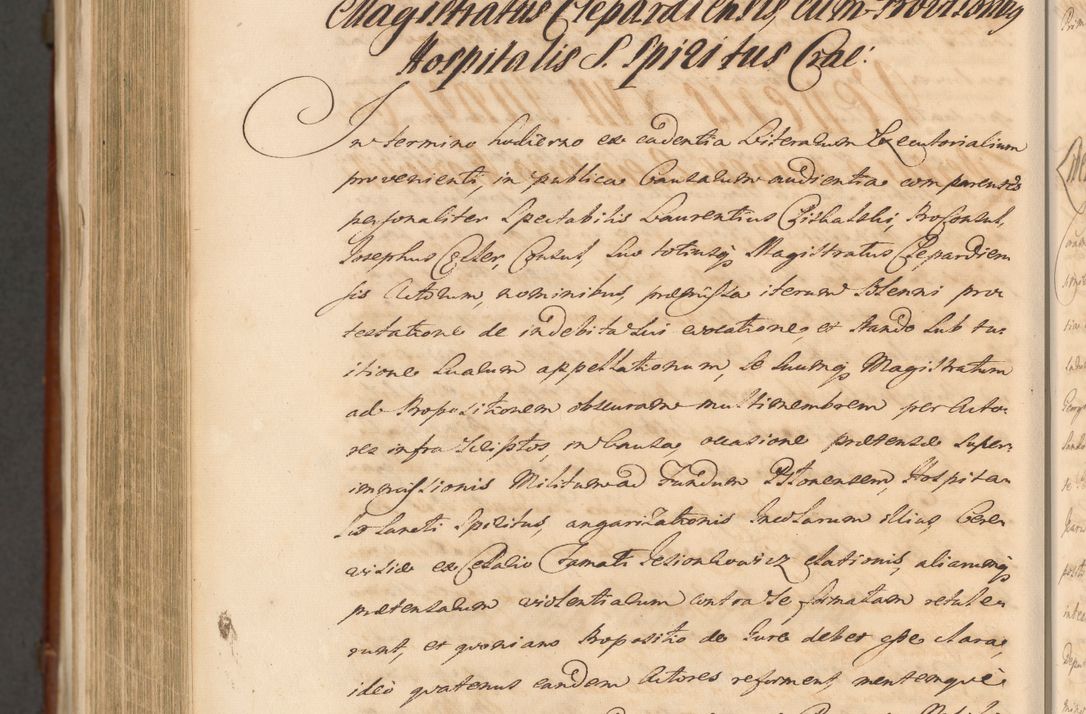 Magistratus Clepardiensis cum Provisoribus
Hospitalis S. Spiritus Crac:
In termino hodierno ex cadentia Literarum Executorialium
provenienti, in publica Causarum audientia comparentes
personaliter Spectabilis Laurentius Proconsul,
Josephus Consul, suo totiusq Magistratus Clepardien
sis Actorum, nominibus, præmissa iterum solenni pro
testatione de indebita sui evocatione, et stando sub tu
itione suarum appellationum, se suumq Magistratum
ad Propositionem obscuram multimembrem per Acto
res infra scriptos, in Causa, occasione prætensæ super
immissionis Militum ad Fundum Hospita
lis Sancti Spiritus, angarizationis Incolarum illius, Cere
visiæ ex Celario Famati elationis, aliarumq
prætensarum violentiarum contra se formatam retule
runt, et quoniam Propositio de Jure debet esse clara,
ideo quatenus eandem Actores reforment, mentemque